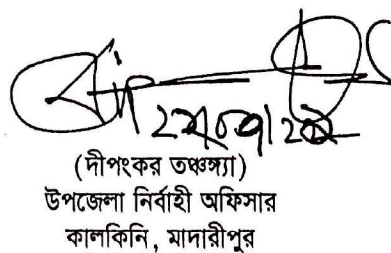 (দীপংকর তঞ্চঙ্গ্যা)
উপজেলা নির্বাহী অফিসার
কালকিনি, মাদারীপুর